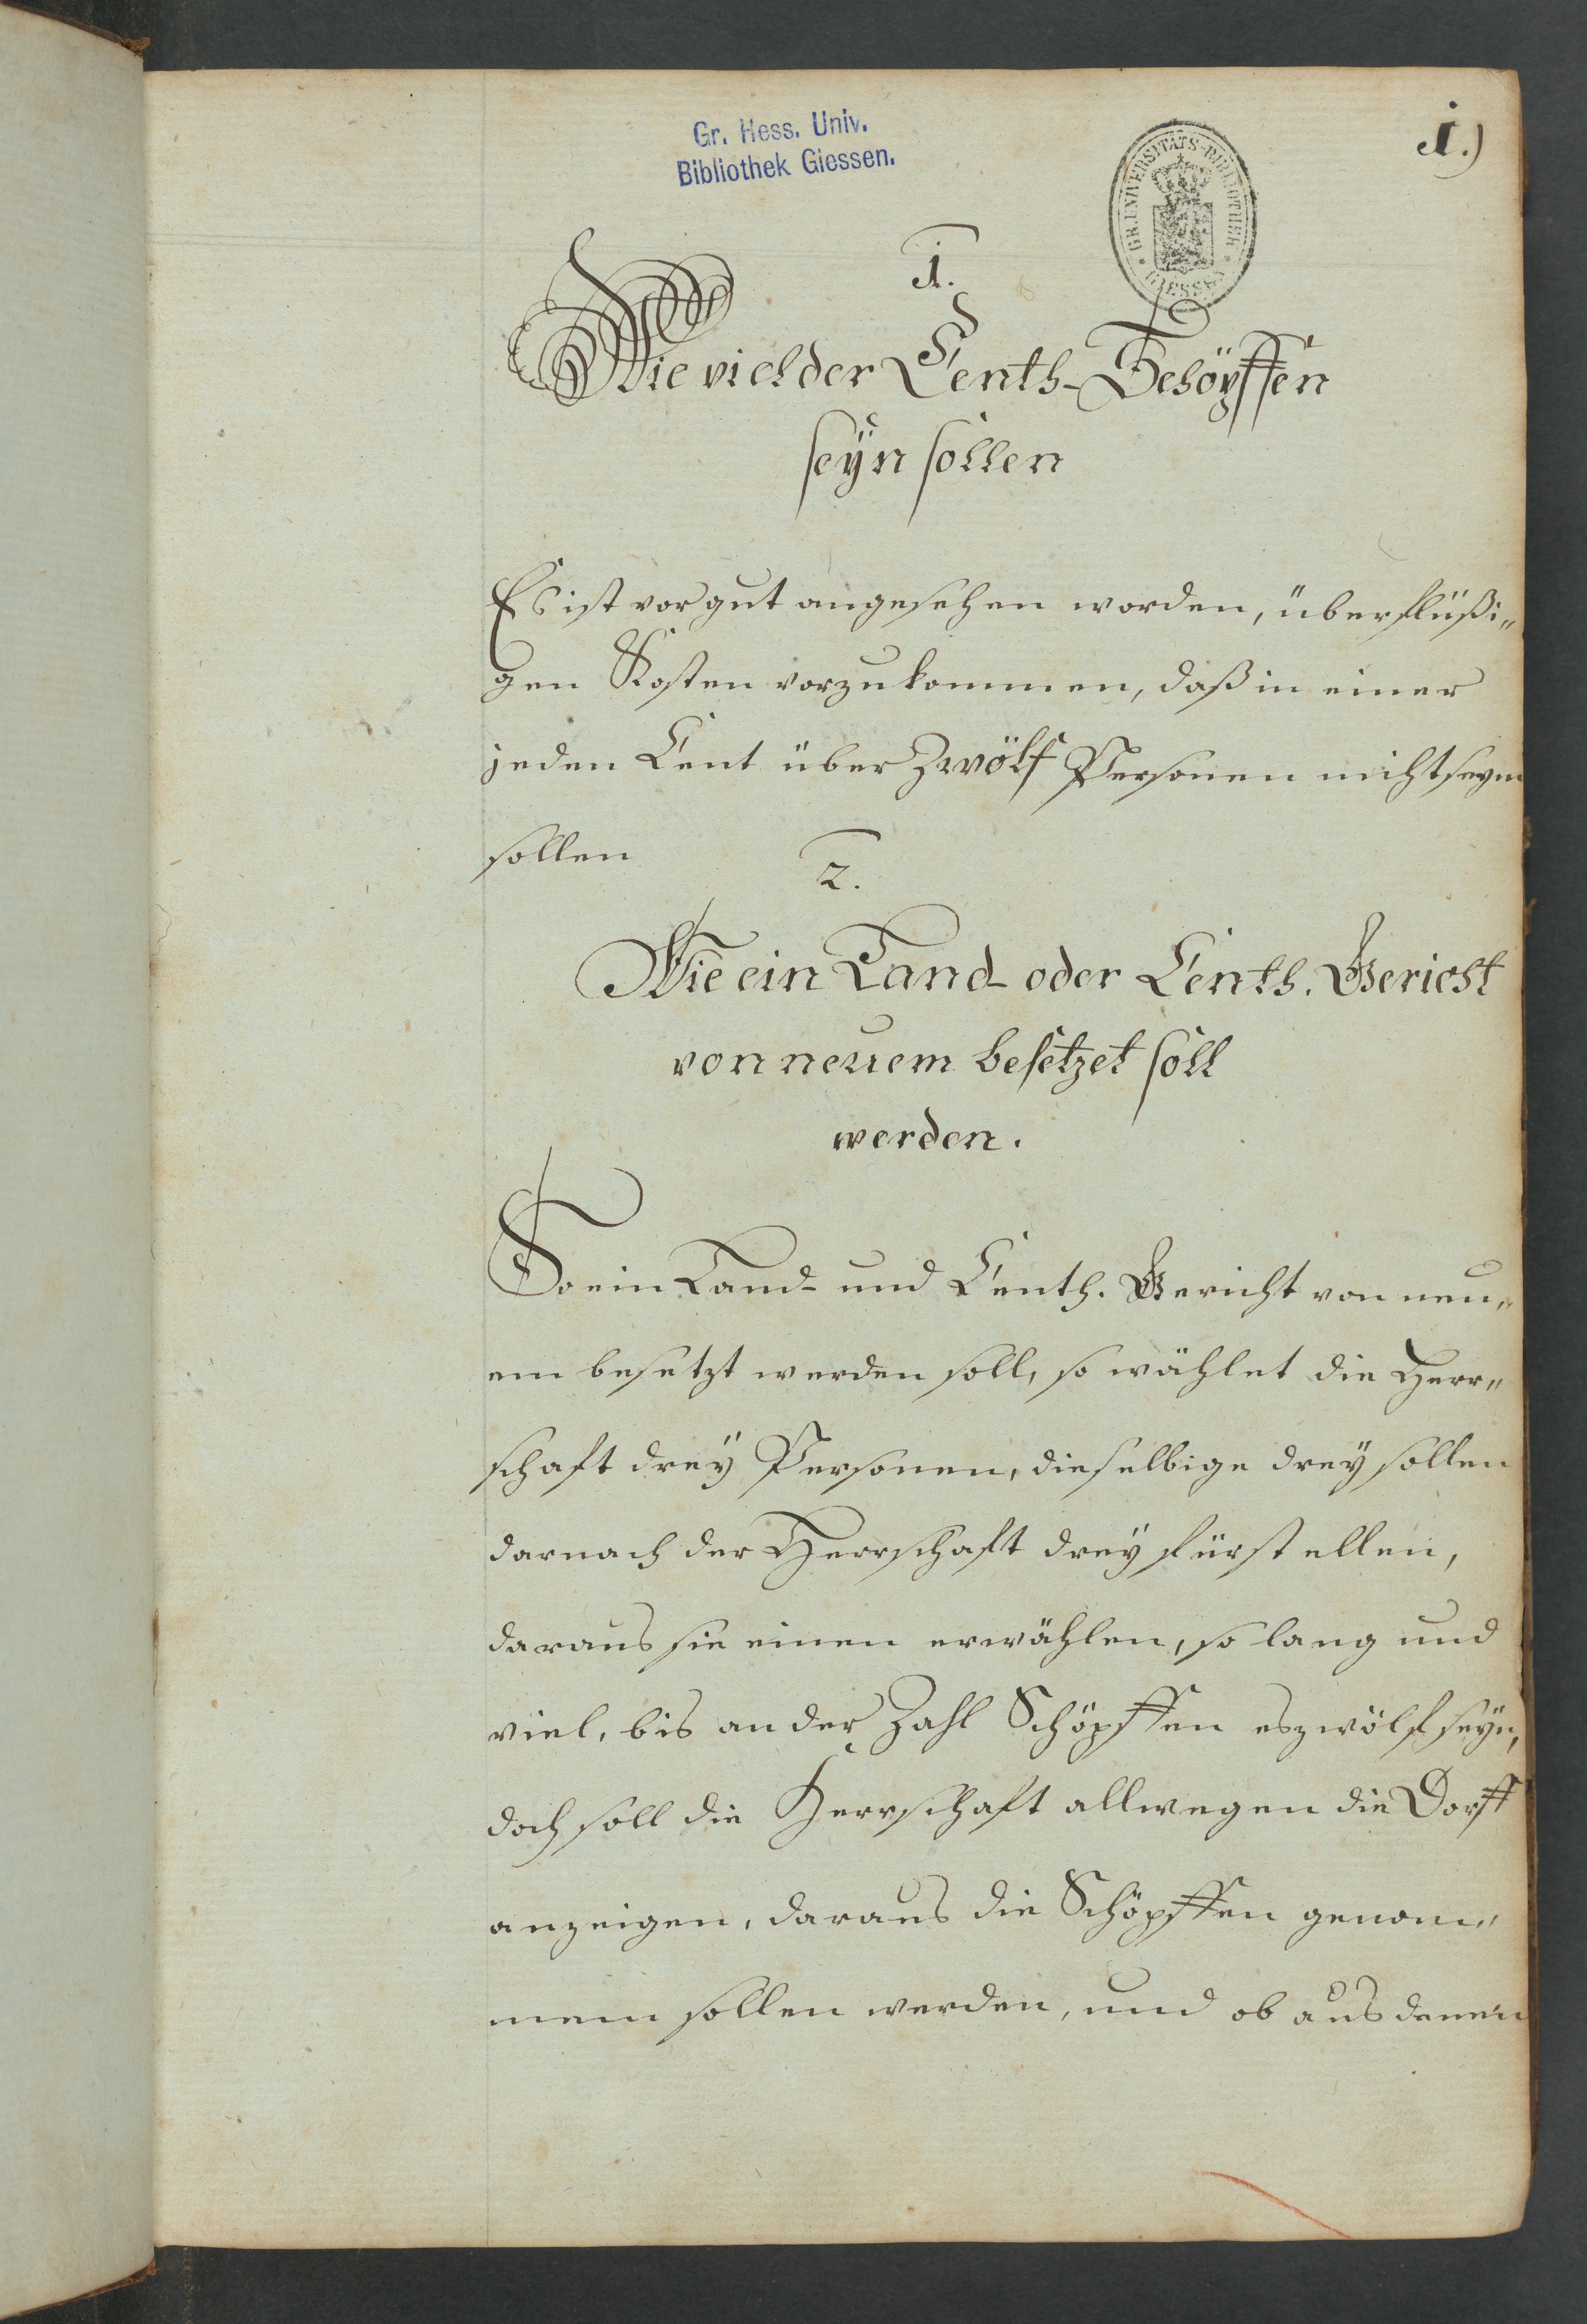 1.)
Gr. Hess. Univ.
Bibliothek Giessen.
GR. UNIVERSITÄTS-BIBLIOTHEK · GIESSEN ·
1.
Wie viel der Centh-Schöpffen
seÿn sollen
Es ist vor gut angesehen worden, überflüßi„
gen Kosten vorzukommen, daß in einer
jeden Cent über Zwölf Personen nicht seyn
sollen
2.
Wie ein Land- oder Centh. Gericht
von neuem besetzet soll
werden.
So ein Land- und Centh. Gericht von neu„
em besetzt werden soll, so wählet die Herr„
schaft dreÿ Personen, dieselbige dreÿ sollen
darnach der Herrschaft dreÿ fürstellen,
daraus sie einen erwählen, so lang und
viel, bis an der Zahl Schöpffen es zwölf seÿn,
doch soll die Herrschaft allwegen die Dorff
anzeigen, daraus die Schöpffen genom„
men sollen werden, und ob aus denen